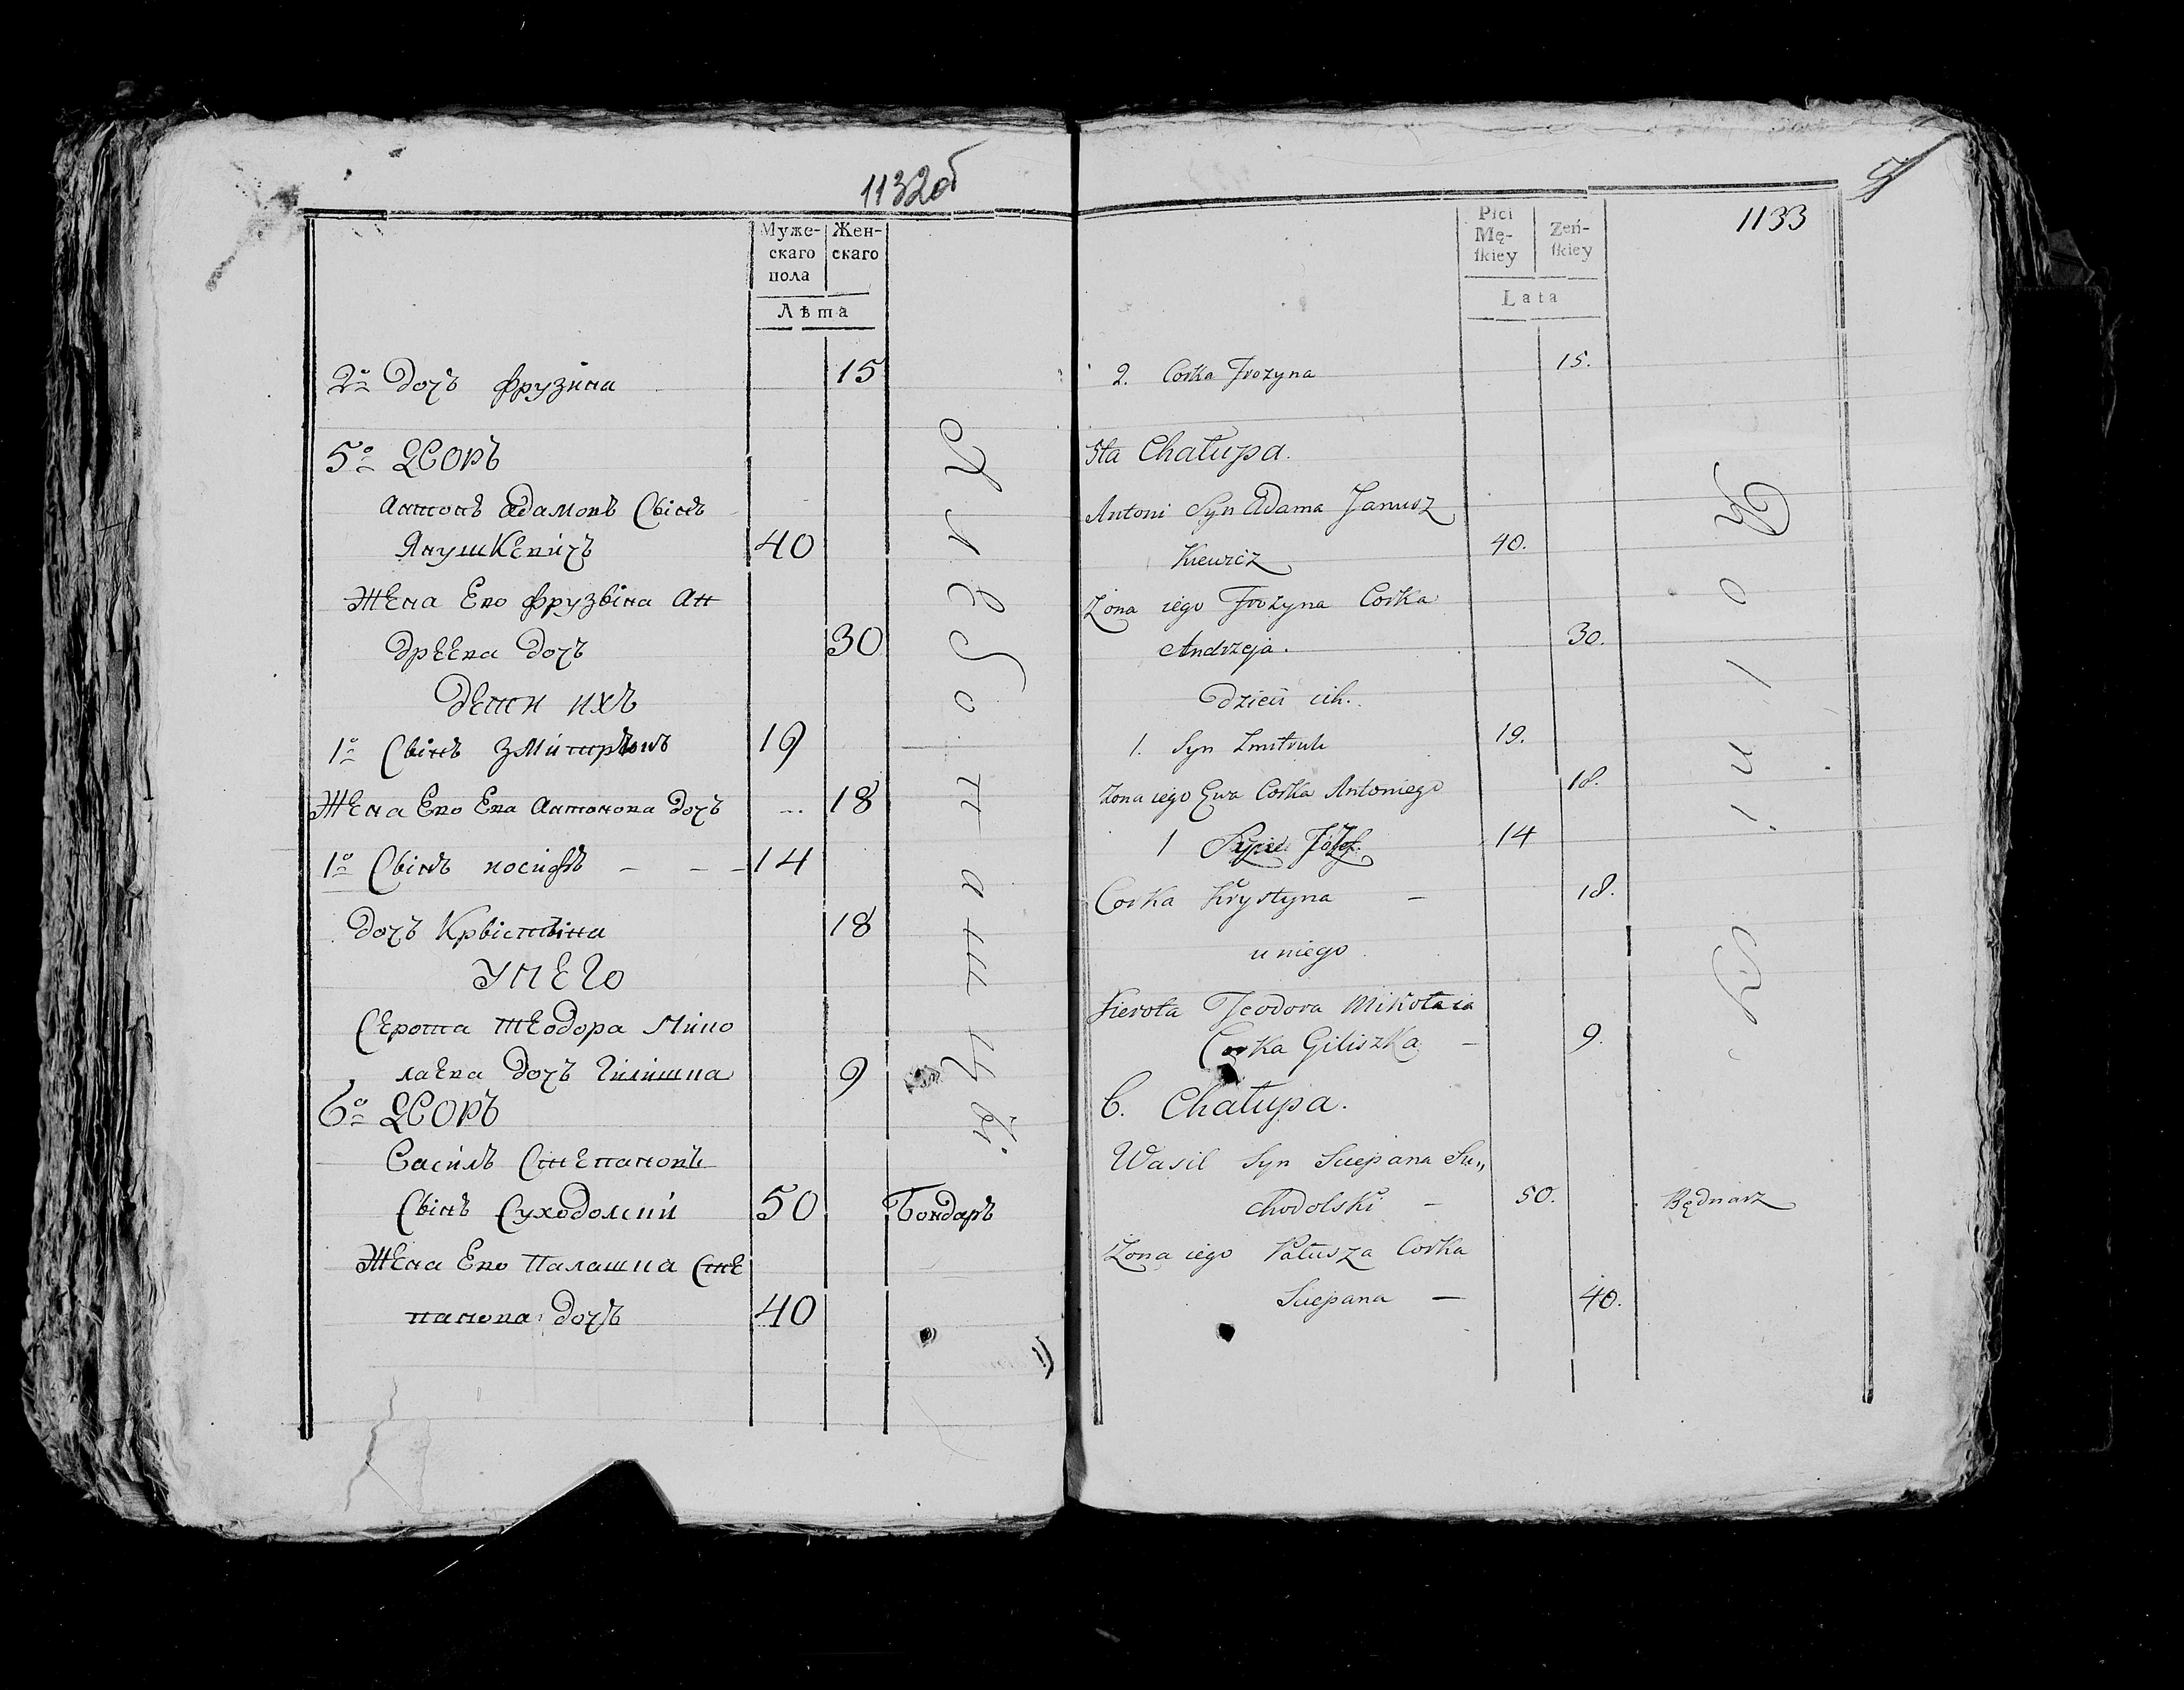 1132об
Муже-
скаго
пола
Жен-
скаго
Лѣта
2о дочъ Фрузина 15
5о Дворъ
Антонъ Адамовъ Свінъ
Янушкевичъ 40
Жена Ево Фрузвіна Ан
дреева дочъ 30
Дети ихъ
1о Свінъ Змитрѣонъ 19
Жена Ево Ева Антонова дочъ ... 18
1о Свінъ иосифъ – – – 14
дочъ Крвіствіна 18
У НЕГО
Серота Теодора Мико
лаева дочъ Гилишка 9
6о Дворъ
Василъ Степановъ
Свінъ Суходолски 50 Бондаръ
Жена Ево Палашка Сте
панова дочъ 40
1133
Płci
Mę-
ſkiey
Zeń-
ſkiey
Lata
2. Corka Frozyna 15.
5ta Chałupa.
Antoni Syn Adama Janusz
kiewicz 40.
Zona iego Frozyna Corka
Andrzeja. 30.
Dzieci ich.
1. Syn Zmitruk 19.
Zona iego Ewa Corka Antoniego 18.
1 Józef. 14
Corka Krystyna – 18.
u niego
Sierota Teodora Mikołaia
Corka Giliszka – 9.
6. Chałupa.
Wasil Syn Sciepana Su„
chodolski – 50. Będnarz
Zona iego Pałusza Corka
Sciepana – 40.